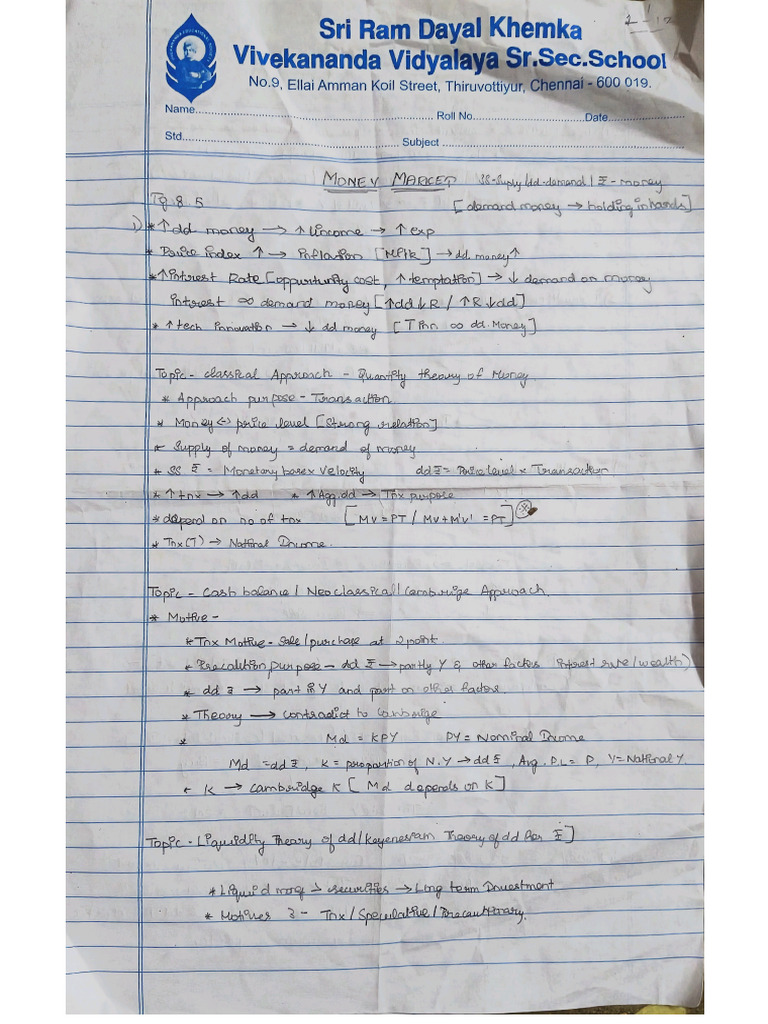 Sri Ram Dayal Khemka
Vivekananda Vidyalaya Sr.Sec.School
No.9, Ellai Amman Koil Street, Thiruvottiyur, Chennai - 600 019.
Name
Roll No.
Date
Std
Subject
MONEY MARKET SS-Supply/dd-demand/₹-money
[demand money → holding in hands]
8.5
1) * ↑ dd money → ↑ income → ↑ exp
* Price index ↑ → inflation → dd. money ↑
* ↑ Intrest Rate [oppurtunity cost, ↑ temptation] → ↓ demand on money
intrest ∞ demand money [↑dd↓R / ↑R↓dd]
* ↑ tech innovation → ↓ dd money [T inn ∞ dd. Money]
Topic - classical Approach - Quantity theory of Money
* Approach purpose - Transaction
* Money ↔ price level [Strong relation]
* Supply of money = demand of money
* SS ₹ = Monetary base x Velocity dd ₹ = Price level x Transaction
* ↑ tnx → ↑ dd * ↑ Agg. dd → Tnx purpose
* depend on no of tnx [MV = PT / MV + M'V' = PT]
* Tnx(T) → National Income.
Topic - Cash balance / Neoclassical / Cambrige Approach.
* Motive -
* Tnx Motive - Sale/purchase at 2 point.
* Precaution purpose - dd ₹ → partly Y & other factors interest rate/wealth)
* dd ₹ → part in Y and part on other factors.
* Theory → contradict to Cambrige
* Md = KPY PY = Nominal Income
Md = dd ₹, K = propartion of N.Y → dd ₹, Avg. P.L = P, Y = National Y.
* K → Cambridge K [Md depends on K]
Topic - Liquidity Theory of dd / Keyenesian Theory of dd for ₹]
* Liquid → securities → Long term Investment
* Motives 3 - Tnx / Speculative / Precautionary.